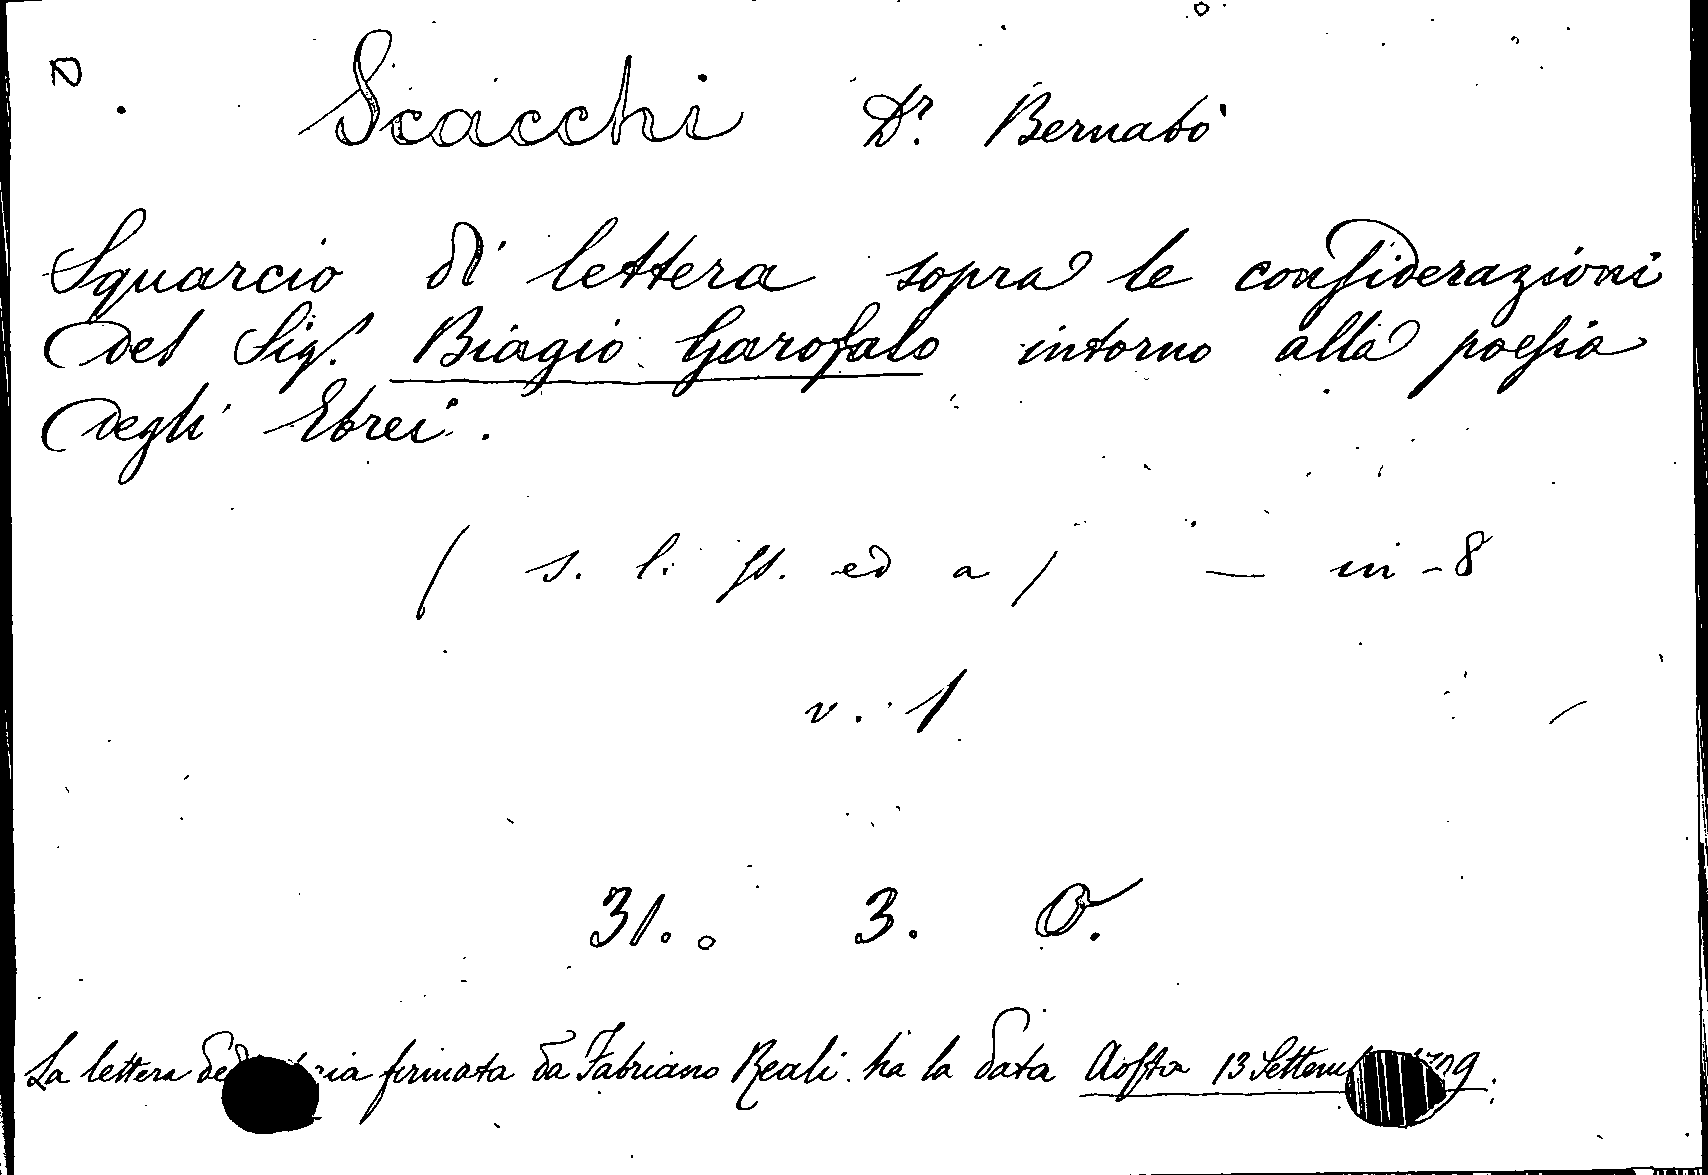 Scacchi Dr. Bernabò
Squarcio di lettera sopra le considerazioni
del Sig.r Biagio Garofalo intorno alla poesia
degli Ebrei.
( s. l. st. ed a ) — in-8
v. 1
31.. 3. O.
La lettera firmata da Fabriano Reali ha la data Aosta 13